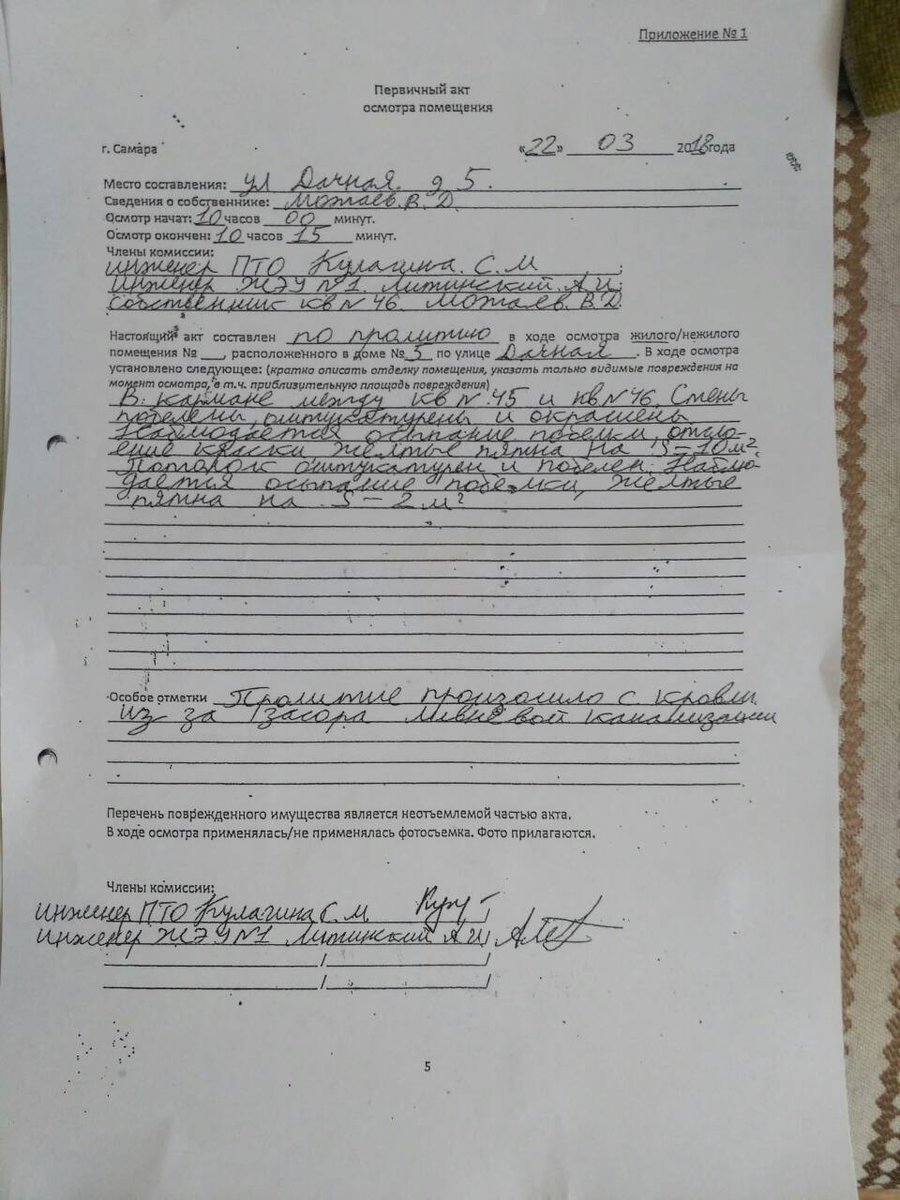 Приложение № 1
Первичный акт
осмотра помещения
г. Самара «22» 03 2018 года
Место составления: ул Дачная д 5.
Сведения о собственнике: Можаев. В. Д.
Осмотр начат: 10 часов 00 минут.
Осмотр окончен: 10 часов 15 минут.
Члены комиссии:
инженер ПТО Кулагина. С. М
инженер ЖЭУ №1. Литинский. А. И.
собственник кв № 46. Можаев. В. Д
Настоящий акт составлен по пролитию в ходе осмотра жилого/нежилого
помещения № ___, расположенного в доме № 5 по улице Дачная. В ходе осмотра
установлено следующее: (кратко описать отделку помещения, указать только видимые повреждения на
момент осмотра, в т.ч. приблизительную площадь повреждения)
В. кармане между кв № 45 и кв № 46. Стены
побелены, оштукатурены и окрашены
Наблюдается осыпание побелки, отсло-
ение краски желтые пятна на S – 10 м²
Потолок оштукатурен и побелен. Наблю-
дается осыпание побелки, желтые
пятна на S – 2 м²
Особое отметки Пролитие произошло с кровли
из за засора ливневой канализации
Перечень поврежденного имущества является неотъемлемой частью акта.
В ходе осмотра применялась/не применялась фотосъемка. Фото прилагаются.
Члены комиссии:
инженер ПТО Кулагина С. М.
инженер ЖЭУ №1 Литинский А. И.
5